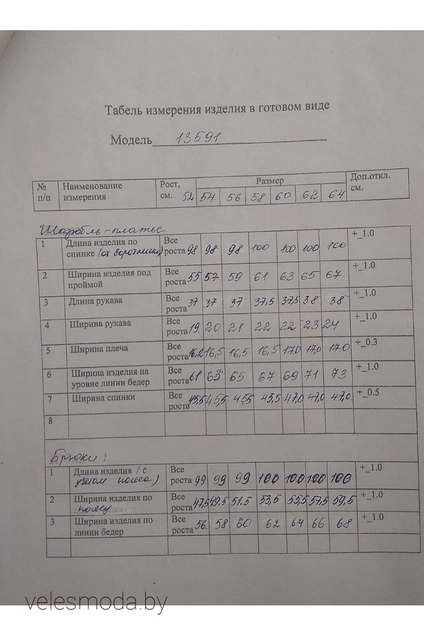 Табель измерения изделия в готовом виде
Модель 13591
№ п/п Наименование измерения Рост, см. Размер Доп.откл. см.
52 54 56 58 60 62 64
платье
1 Длина изделия по спинке (от воротника) Все роста 98 98 98 100 100 100 100 +_1.0
2 Ширина изделия под проймой Все роста 55 57 59 61 63 65 67 +_1.0
3 Длина рукава Все роста 37 37 37 37,5 37,5 38 38 +_1.0
4 Ширина рукава Все роста 19 20 21 22 22 23 24 +_1.0
5 Ширина плеча Все роста 16,5 16,5 16,5 17,0 17,0 17,0 +_0.3
6 Ширина изделия на уровне линии бедер Все роста 61 63 65 67 69 71 73 +_1.0
7 Ширина спинки Все роста 45,5 45,5 45,5 47,0 47,0 47,0 +_0.5
8
Брюки:
1 Длина изделия (с пояса) Все роста 99 99 99 100 100 100 100 +_1.0
2 Ширина изделия по поясу Все роста 47,5 49,5 51,5 53,5 55,5 57,5 59,5 +_1.0
3 Ширина изделия по линии бедер Все роста 56 58 60 62 64 66 68 +_1.0
velesmoda.by